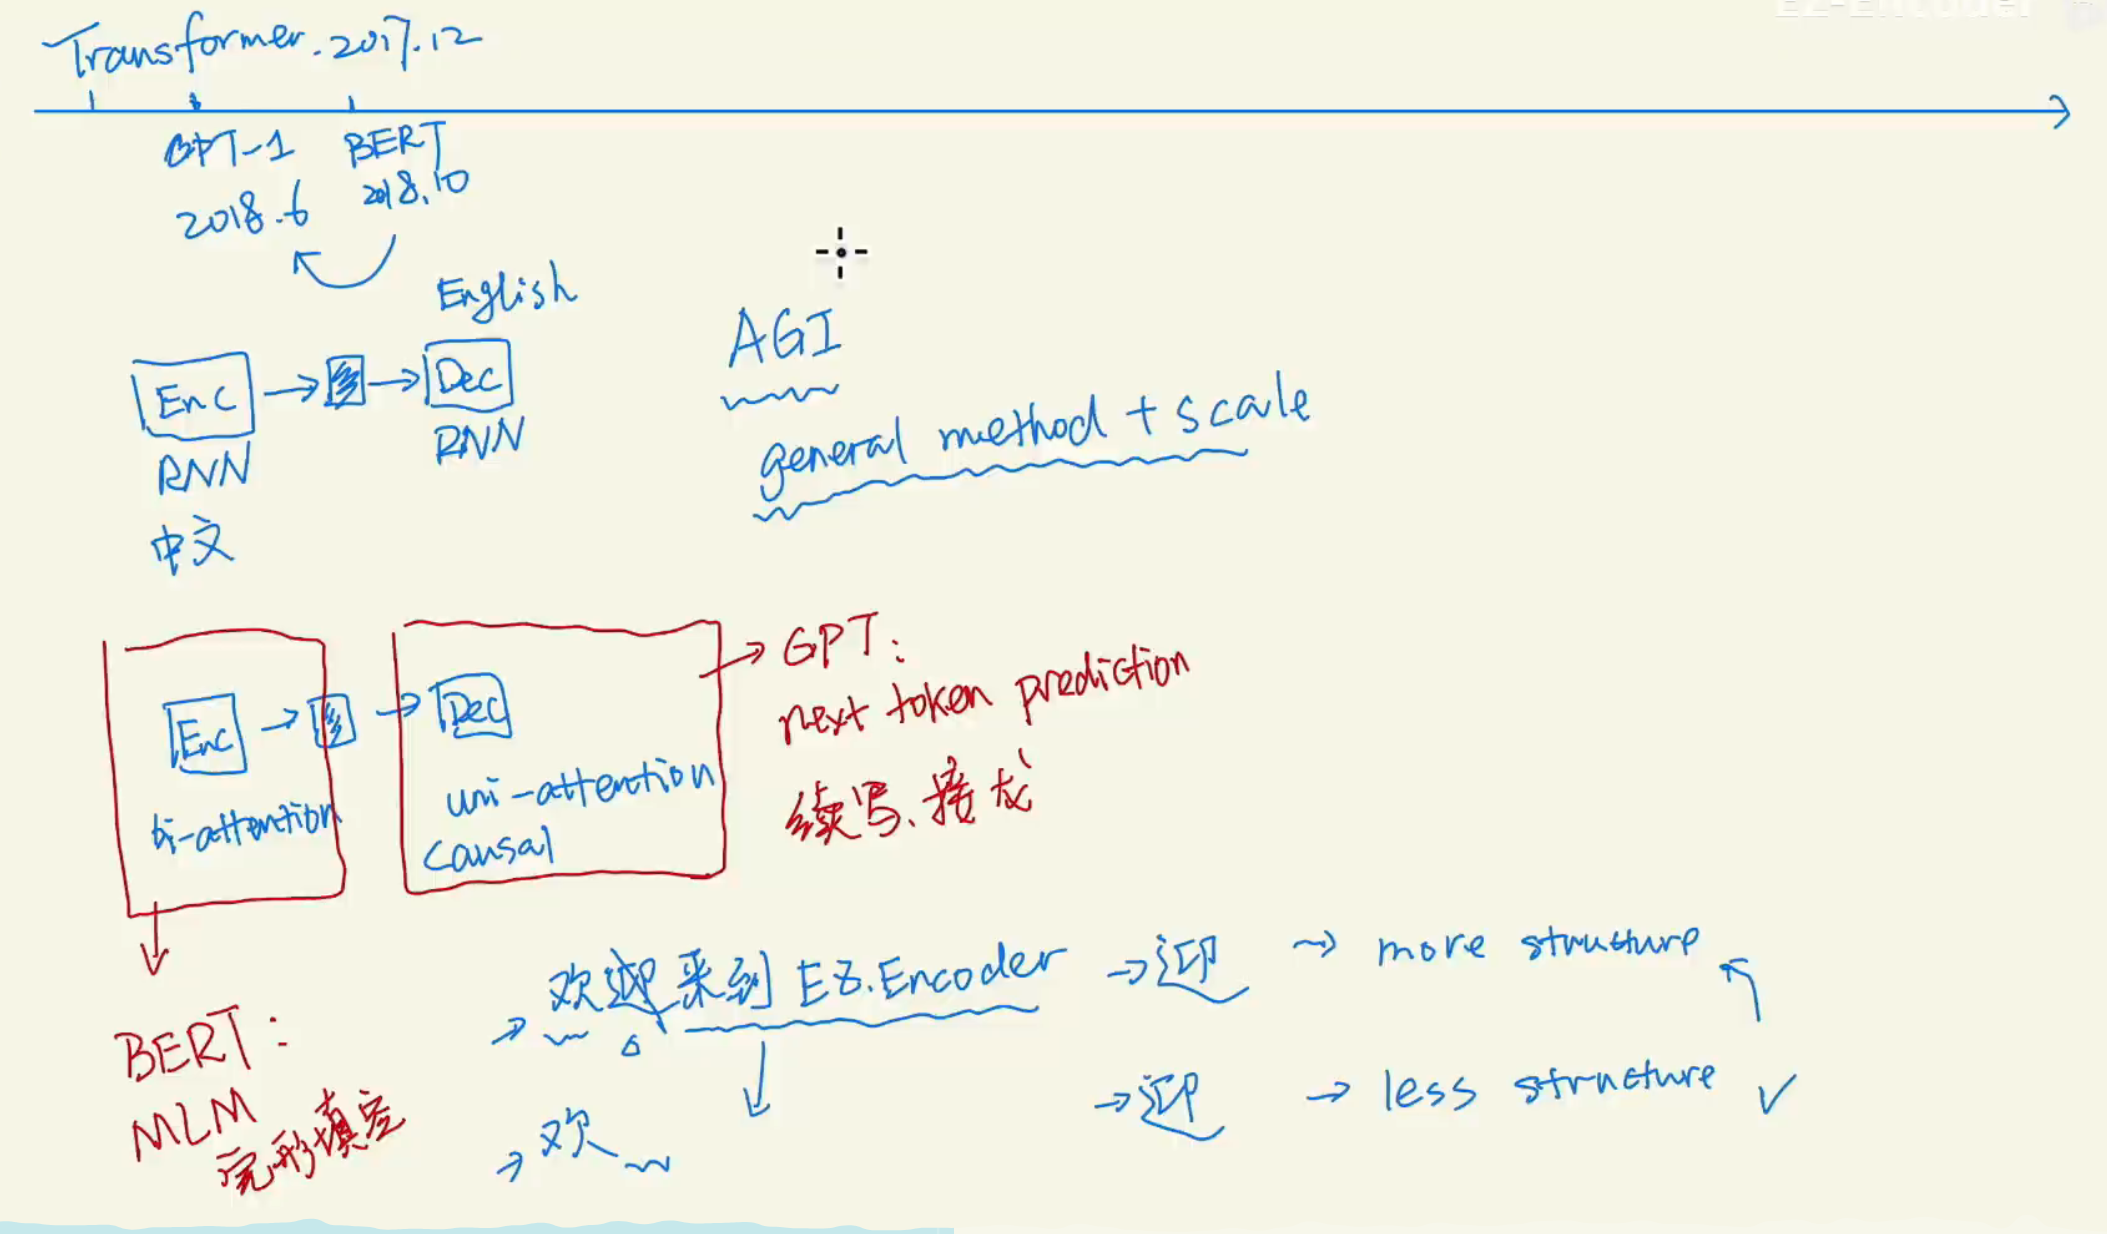 EZ-Encoder
Transformer. 2017.12
GPT-1
2018.6
BERT
2018.10
English
Enc
Dec
RNN
RNN
中文
AGI
general method + scale
Enc
Dec
bi-attention
uni-attention
causal
GPT:
next token prediction
续写、接龙
BERT:
MLM
完形填空
欢迎来到 EZ.Encoder → 迎 → more structure
欢 → 迎 → less structure ✓